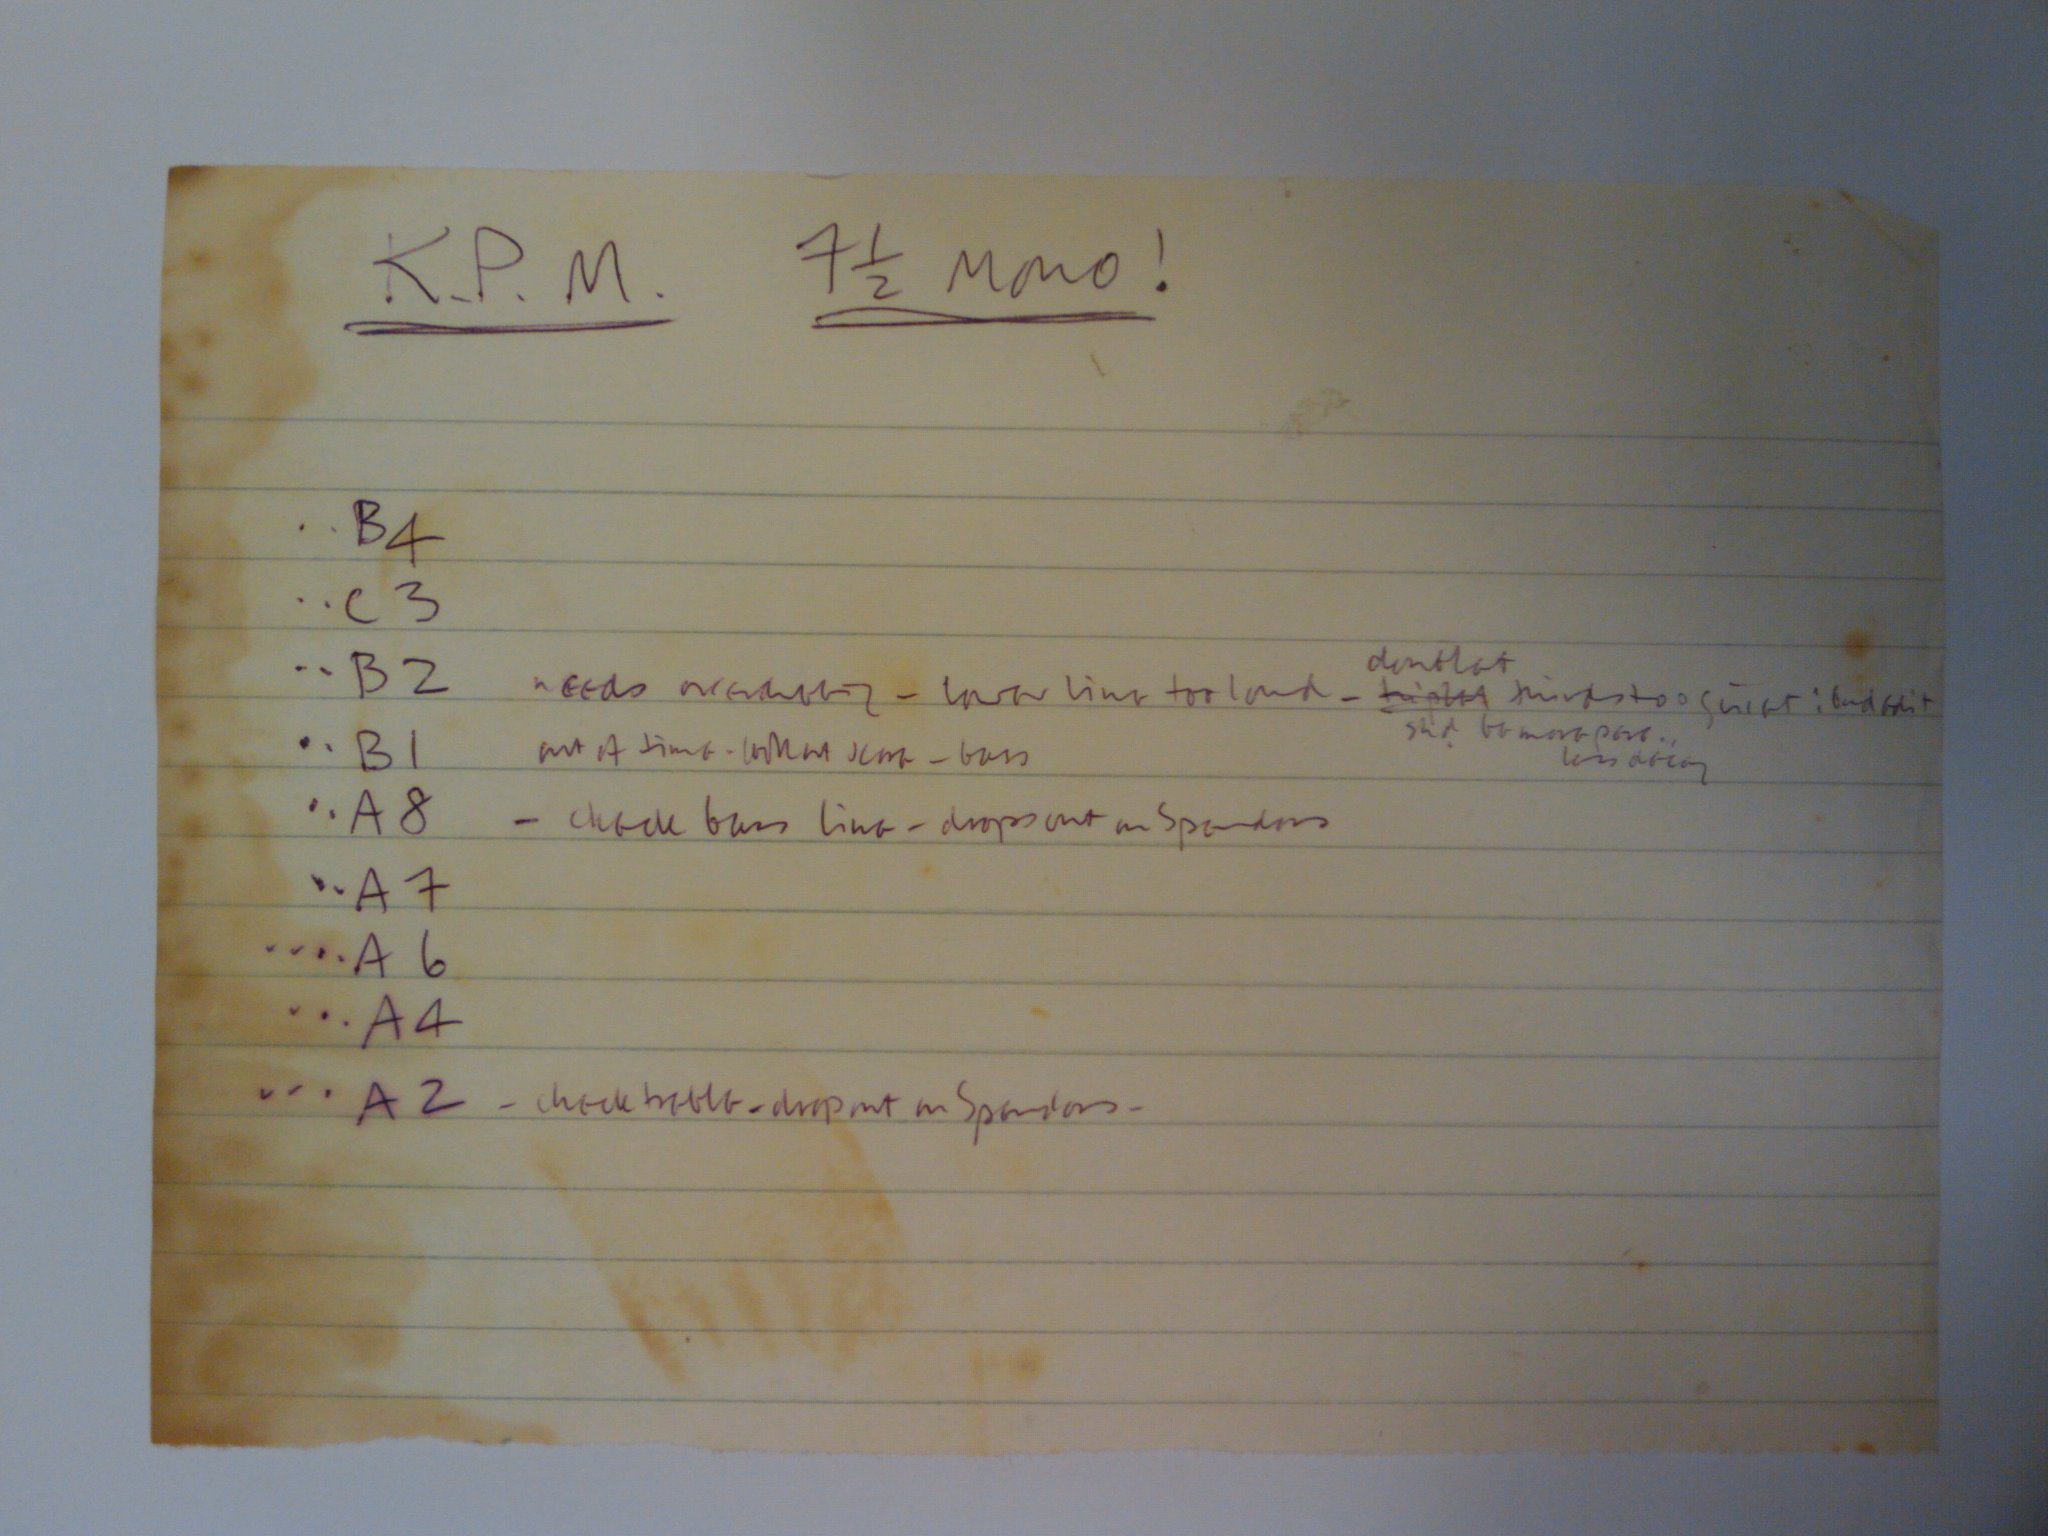 K.P.M. 7½ mono!
..B4
..C3
..B2 needs overdubbing - lower line too loud - triplet thirds too quiet: bad edit
shd. be more
less decay
..B1 out of time - without score - bass
..A8 - check bass line - drops out on Spendors
..A7
....A6
...A4
...A2 - check treble - drop out on Spendors -